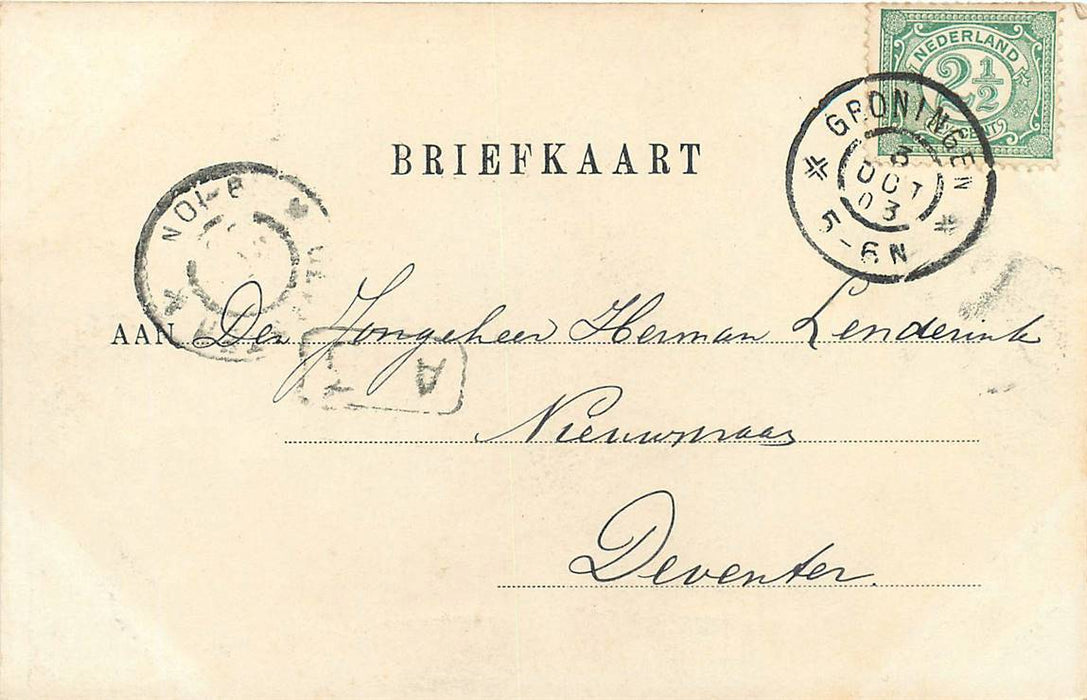 NEDERLAND
2½
CENT
GRONINGEN
6
OCT
03
5-6N
BRIEFKAART
8-10N
A
AAN Den Jongeheer Herman Lenderink
Nieuwmaas
Deventer.